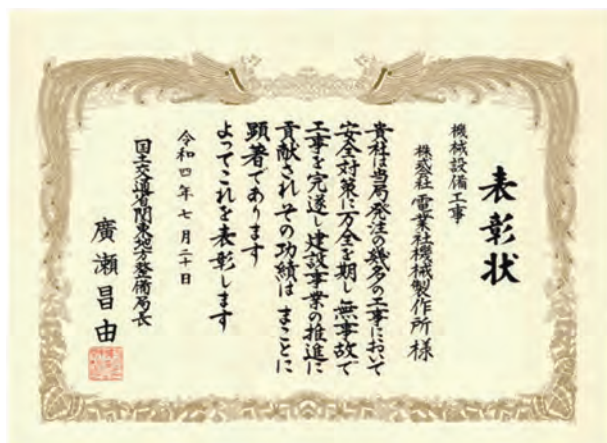 表彰状
機械設備工事
株式会社 電業社機械製作所 様
貴社は当局発注の幾多の工事において
安全対策に万全を期し 無事故で
工事を完遂し建設事業の推進に
貢献され その功績は まことに
顕著であります
よってこれを表彰します
令和四年七月二十日
国土交通省関東地方整備局長
廣瀬昌由